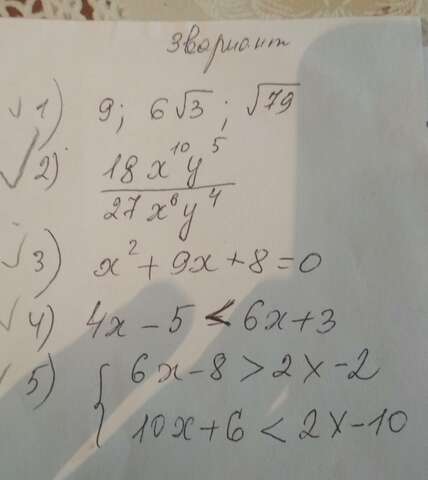 3 вариант
1) 9; 6√3; √79
2) 18x¹⁰y⁵ / 27x⁶y⁴
3) x² + 9x + 8 = 0
4) 4x − 5 < 6x + 3
5) { 6x − 8 > 2x − 2
10x + 6 < 2x − 10